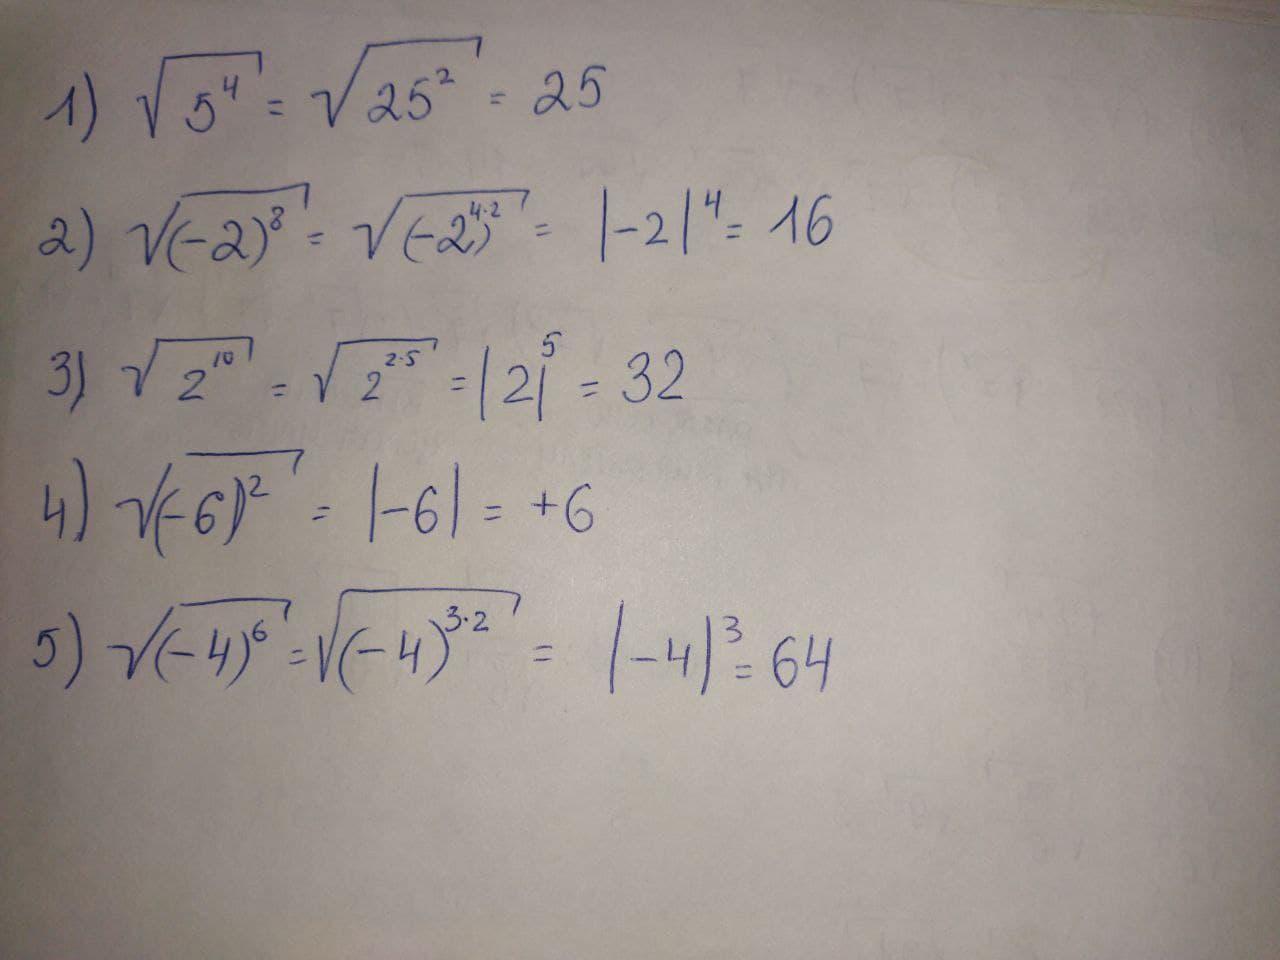 1) √5⁴ = √25² = 25
2) √(-2)⁸ = √(-2)⁴·² = |-2|⁴ = 16
3) √2¹⁰ = √2²·⁵ = |2|⁵ = 32
4) √(-6)² = |-6| = +6
5) √(-4)⁶ = √(-4)³·² = |-4|³ = 64